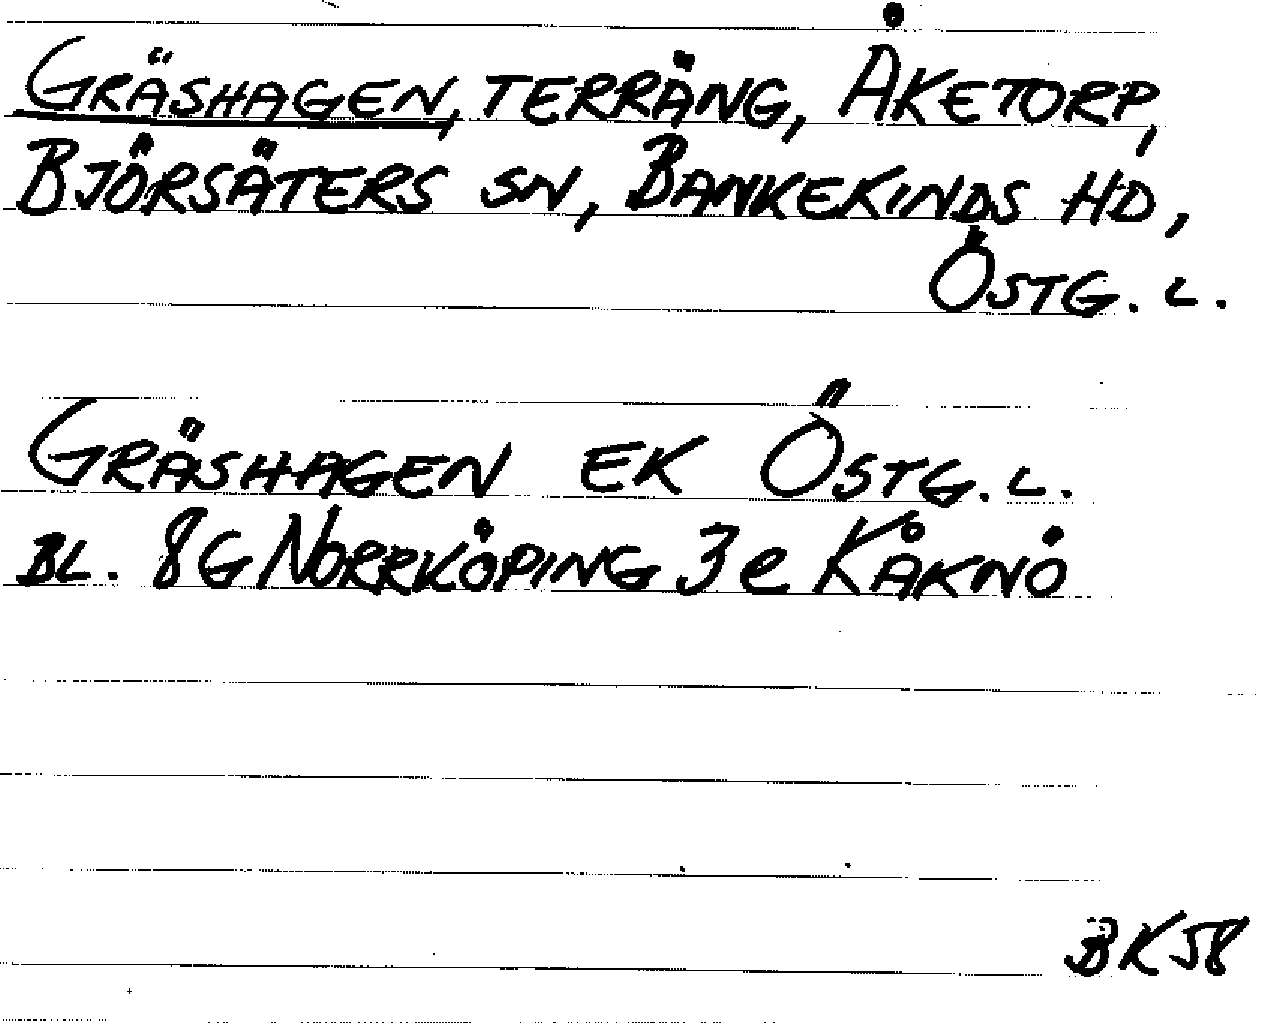 GRÄSHAGEN, TERRÄNG, ÅKETORP,
BJÖRSÄTERS SN, BANKEKINDS HD,
ÖSTG. L.
GRÄSHAGEN EK ÖSTG. L.
BL. 8G NORRKÖPING 3e KÅKNÖ
BK58